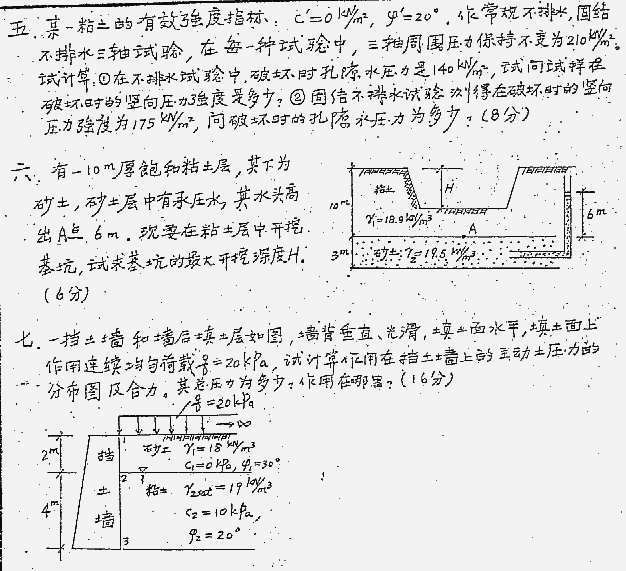 五. 某一粘土的有效强度指标: c'=0 kN/m², φ'=20°. 作常规不排水,固结
不排水三轴试验, 在每一种试验中, 三轴周围压力保持不变为210kN/m²。
试计算:①在不排水试验中,破坏时孔隙水压力是140kN/m², 试问试样在
破坏时的竖向压力强度是多少? ②固结不排水试验测得在破坏时的竖向
压力强度为175kN/m², 问破坏时的孔隙水压力为多少? (8分)
六. 有一10m厚饱和粘土层, 其下为
砂土, 砂土层中有承压水, 其水头高
出A点 6m. 现要在粘土层中开挖
基坑, 试求基坑的最大开挖深度H.
(6分)
粘土
H
10m
γ₁=18.9kN/m³
6m
A
3m
砂土 γ₂=19.5kN/m³
七. 一挡土墙和墙后填土层如图, 墙背垂直、光滑, 填土面水平, 填土面上
作用连续均匀荷载q=20kPa, 试计算作用在挡土墙上的主动土压力的
分布图及合力。其总压力为多少? 作用在哪里? (16分)
q=20kPa
∞
2m
4m
挡
土
墙
1
2
3
砂土 γ₁=18kN/m³
c₁=0kPa, φ₁=30°
粘土 γ2sat=19kN/m³
c₂=10kPa,
φ₂=20°